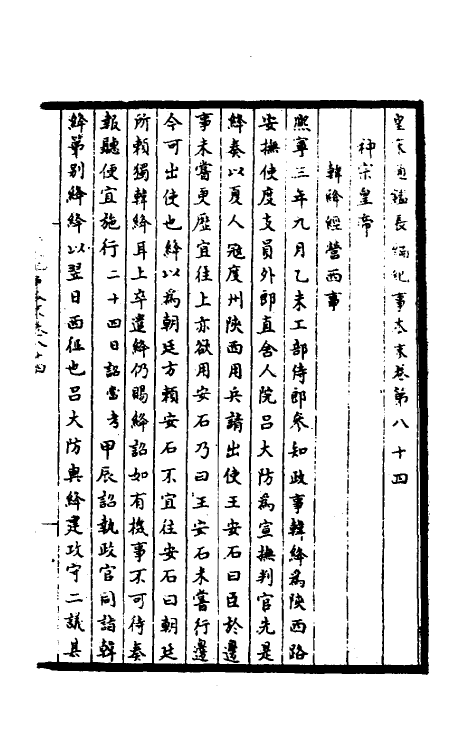 皇宋通鑑長編紀事本末卷第八十四
神宗皇帝
韓絳經營西事
熙寧三年九月乙未工部侍郎參知政事韓絳為陝西路
安撫使度支員外郎直舍人院呂大防為宣撫判官先是
絳奏以夏人寇度州陝西用兵請出使王安石曰臣於邊
事未嘗更歷宜往上亦欲用安石乃曰王安石未嘗行邊
今可出使也絳以為朝廷方賴安石不宜往安石曰朝廷
所賴獨韓絳耳上卒遣絳仍賜絳詔如有機事不可待奏
報聽便宜施行二十四日詔當考甲辰詔執政官同詣韓
絳第別絳絳以翌日西征也呂大防與絳建攻守二議其